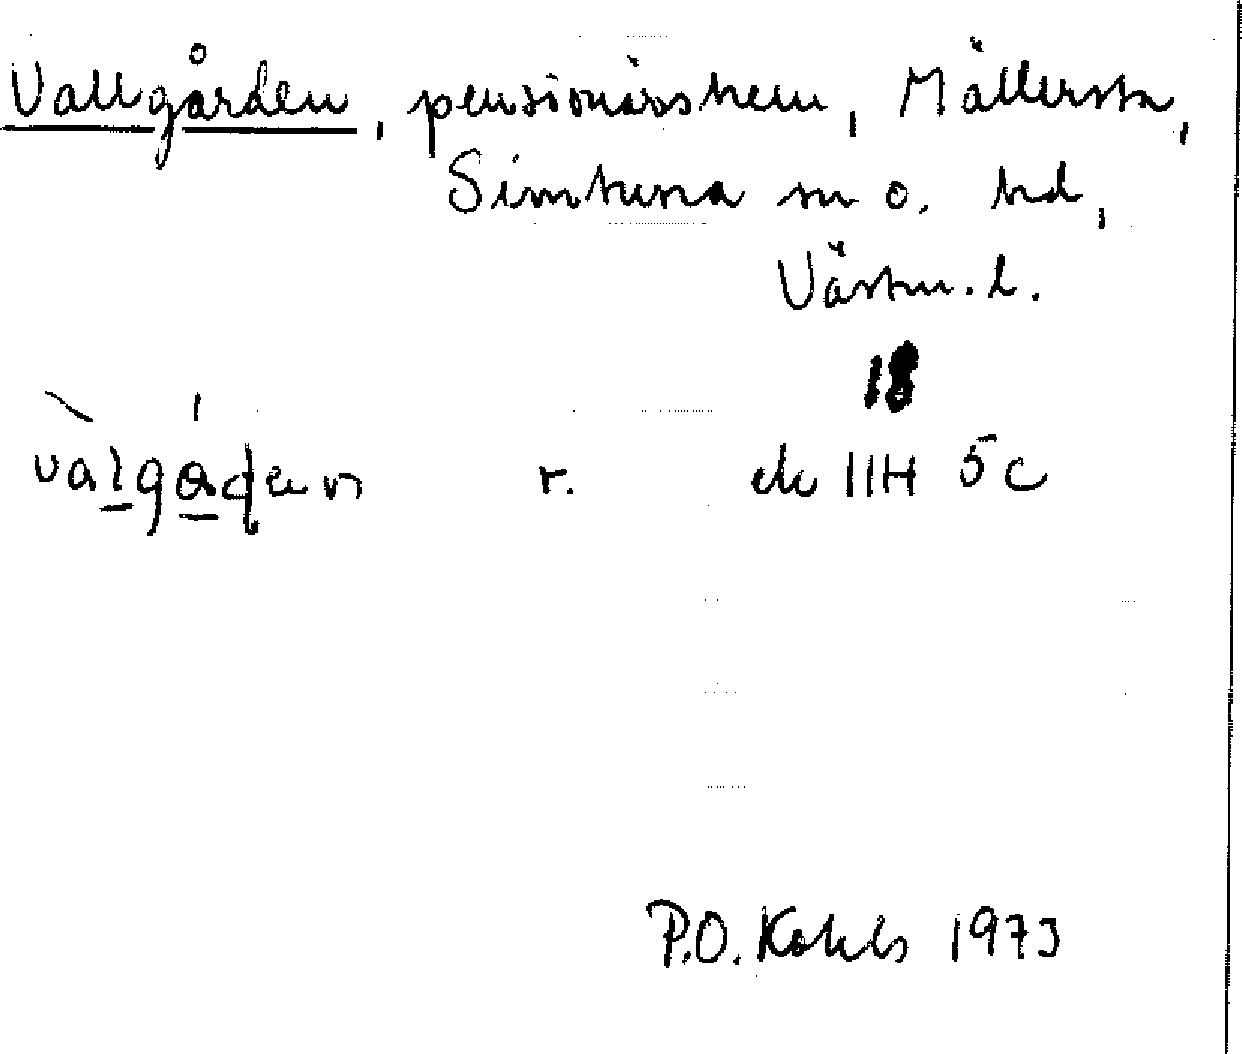 Vallgården, pensionärshem, Mällersta,
Simtuna sn o. hd,
Västm. l.
18
valgåden r. ek 11H 5c
P.O. Kohls 1973